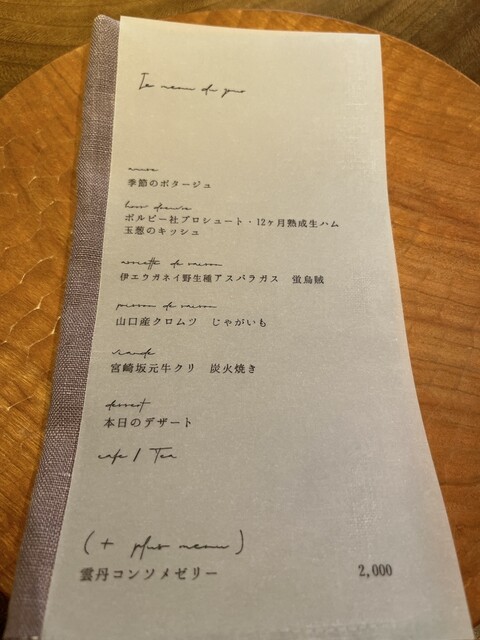 Le menu du jour
amuse
季節のポタージュ
hors d'œuvre
ボルピー社プロシュート・12ヶ月熟成生ハム
玉葱のキッシュ
assiette de saison
伊エウガネイ野生種アスパラガス 蛍烏賊
poisson de saison
山口産クロムツ じゃがいも
viande
宮崎坂元牛クリ 炭火焼き
dessert
本日のデザート
cafe / Tea
(+ plus menu)
雲丹コンソメゼリー 2,000